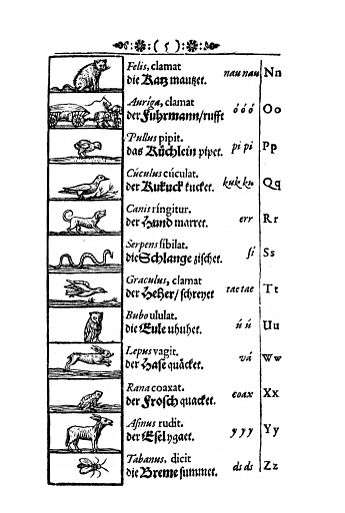 ( 5 )
Felis, clamat
die Katz mautzet. nau nau Nn
Auriga, clamat
der Fuhrmann/rufft ó ó ó Oo
Pullus pipit.
das Küchlein pipet. pi pi Pp
Cúculus cúculat.
der Kukuck kucket. kuk ku Qq
Canis ringitur.
der Hund marret. err Rr
Serpens sibilat.
die Schlange zischet. si Ss
Graculus, clamat
der Heher/schreyet tae tae Tt
Bubo ululat.
die Eule uhuhet. ú ú Uu
Lepus vagit.
der Hase quäcket. vá Ww
Rana coaxat.
der Frosch quacket. coax Xx
Asinus rudit.
der Esel ygaet. y y y Yy
Tabanus, dicit
die Breme summet. ds ds Zz